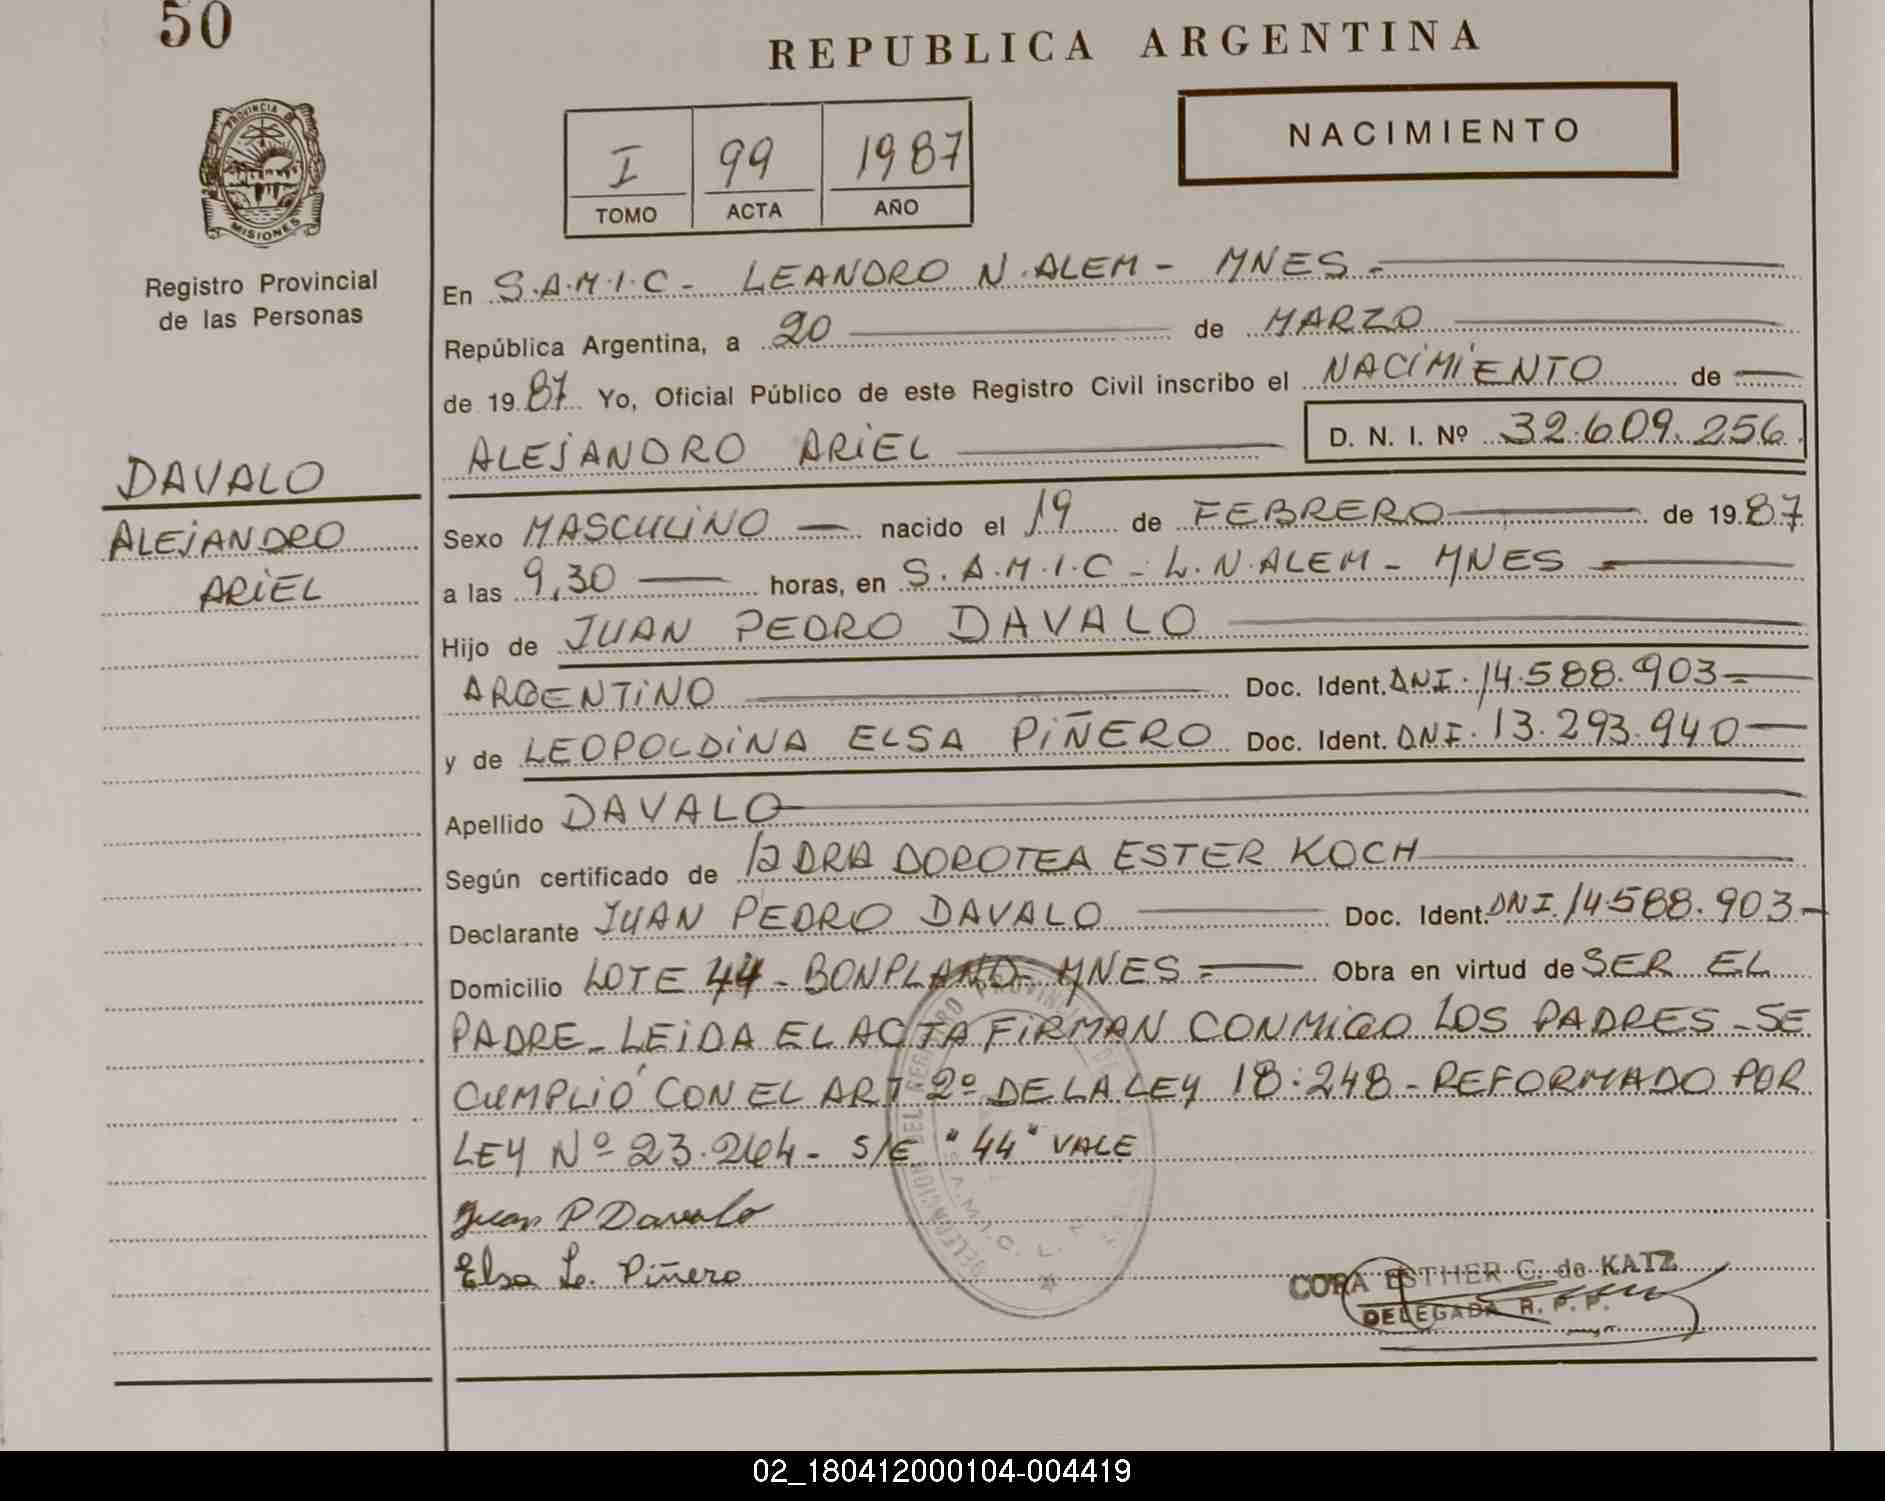 50
REPUBLICA ARGENTINA
NACIMIENTO
I 99 1987
TOMO ACTA AÑO
PROVINCIA DE
MISIONES
Registro Provincial
de las Personas
En S.A.M.I.C - LEANDRO N. ALEM - MNES -
República Argentina, a 20 de MARZO
de 1987 Yo, Oficial Público de este Registro Civil inscribo el NACIMIENTO de
ALEJANDRO ARIEL D. N. I. Nº 32.609.256
DAVALO
ALEJANDRO
ARIEL
Sexo MASCULINO nacido el 19 de FEBRERO de 1987
a las 9,30 horas, en S.A.M.I.C - L.N.ALEM - MNES
Hijo de JUAN PEDRO DAVALO
ARGENTINO Doc. Ident. DNI. 14.588.903
y de LEOPOLDINA ELSA PIÑERO Doc. Ident. DNI. 13.293.940
Apellido DAVALO
Según certificado de la DRA DOROTEA ESTER KOCH
Declarante JUAN PEDRO DAVALO Doc. Ident. DNI. 14.588.903
Domicilio LOTE 44 - BONPLAND - MNES Obra en virtud de SER EL
PADRE - LEIDA EL ACTA FIRMAN CONMIGO LOS PADRES - SE
CUMPLIÓ CON EL ART 2º DE LA LEY 18.248 - REFORMADO POR
LEY Nº 23.264 - S/E "44" VALE
Juan P Davalo
Elsa L. Piñero
DELEGACION DEL REGISTRO PROVINCIAL DE
S.A.M.I.C. L. N.
CORA ESTHER C. de KATZ
DELEGADA R. P. P.
02_180412000104-004419